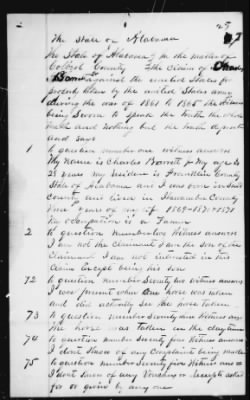 The State of Alabama
The State of Alabama In the matter of
Colbert County the claim of Charles
Barrett against the united States for
property taken by the united States army
during the war of 1861 to 1865 the witness
being Sworn to Speak the truth the whole
truth and nothing but the truth deposes
and says
1 To question number one witness answers
My name is Charles Barrett my age is
28 years my residen is Franklin County
State of Alabama and I was born in said
county and lived in Itawamba County
years of
My occupation is a Farmer
2 To question number two Witness answers
I am not the Claimant I am the son of the
Claimant I am not interested in this
Claim Except being his son
72 To question number Seventy two witness answers
I was present when one horse was taken
and did actually See the horse taken
73 To question number Seventy three Witness answ
The horse was taken in the daytime
74 To question number Seventy four Witness answers
I dont Know of any Complaint being made
75 To question number Seventy five Witness answers
I dont Know of any Voucher or receipts asked
for or given by any one